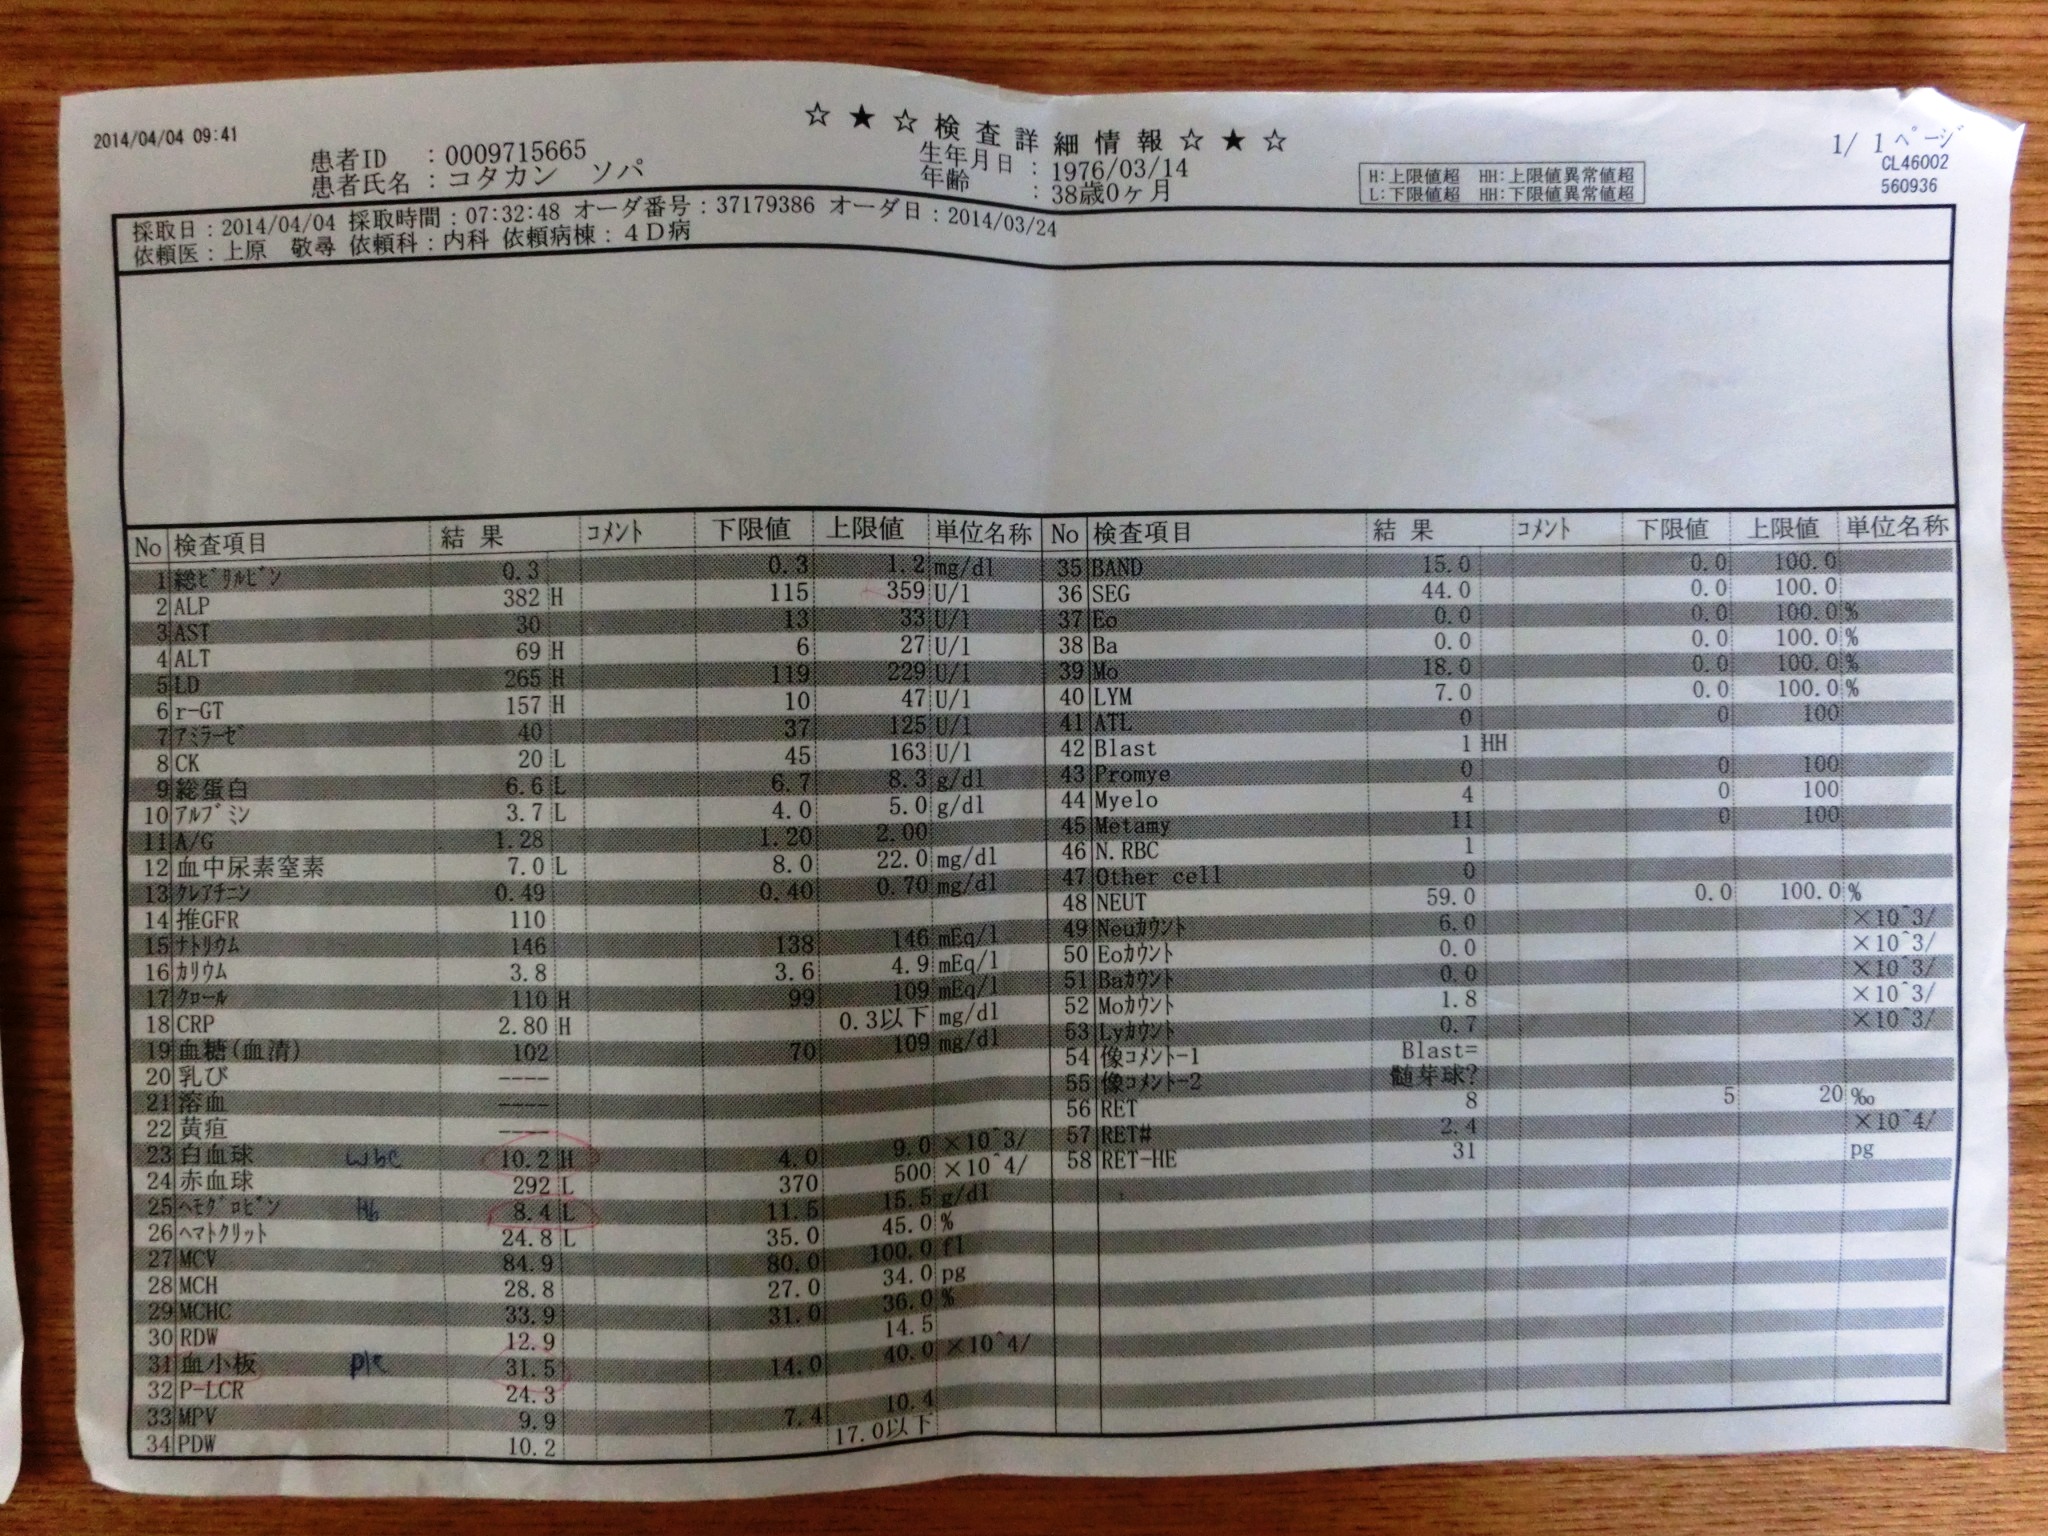 2014/04/04 09:41
☆ ★ ☆ 検 査 詳 細 情 報 ☆ ★ ☆
1/ 1 ﾍﾟｰｼﾞ
CL46002
560936
患者ID : 0009715665
患者氏名 : コタカン ソパ
生年月日 : 1976/03/14
年齢 : 38歳0ヶ月
H:上限値超 HH:上限値異常値超
L:下限値超 HH:下限値異常値超
採取日 : 2014/04/04 採取時間 : 07:32:48 オーダ番号 : 37179386 オーダ日 : 2014/03/24
依頼医 : 上原 敬尋 依頼科 : 内科 依頼病棟 : 4D病
No 検査項目 結 果 ｺﾒﾝﾄ 下限値 上限値 単位名称
1 総ﾋﾞﾘﾙﾋﾞﾝ 0.3 0.3 1.2 mg/dl
2 ALP 382 H 115 359 U/l
3 AST 30 13 33 U/l
4 ALT 69 H 6 27 U/l
5 LD 265 H 119 229 U/l
6 r-GT 157 H 10 47 U/l
7 ｱﾐﾗｰｾﾞ 40 37 125 U/l
8 CK 20 L 45 163 U/l
9 総蛋白 6.6 L 6.7 8.3 g/dl
10 ｱﾙﾌﾞﾐﾝ 3.7 L 4.0 5.0 g/dl
11 A/G 1.28 1.20 2.00
12 血中尿素窒素 7.0 L 8.0 22.0 mg/dl
13 ｸﾚｱﾁﾆﾝ 0.49 0.40 0.70 mg/dl
14 推GFR 110
15 ﾅﾄﾘｳﾑ 146 138 146 mEq/l
16 ｶﾘｳﾑ 3.8 3.6 4.9 mEq/l
17 ｸﾛｰﾙ 110 H 99 109 mEq/l
18 CRP 2.80 H 0.3以下 mg/dl
19 血糖(血清) 102 70 109 mg/dl
20 乳び ----
21 溶血 ----
22 黄疸 ----
23 白血球 wbc 10.2 H 4.0 9.0 ×10^3/
24 赤血球 292 L 370 500 ×10^4/
25 ﾍﾓｸﾞﾛﾋﾞﾝ Hb 8.4 L 11.5 15.5 g/dl
26 ﾍﾏﾄｸﾘｯﾄ 24.8 L 35.0 45.0 %
27 MCV 84.9 80.0 100.0 fl
28 MCH 28.8 27.0 34.0 pg
29 MCHC 33.9 31.0 36.0 %
30 RDW 12.9 14.5
31 血小板 plt 31.5 14.0 40.0 ×10^4/
32 P-LCR 24.3
33 MPV 9.9 7.4 10.4
34 PDW 10.2 17.0以下
No 検査項目 結 果 ｺﾒﾝﾄ 下限値 上限値 単位名称
35 BAND 15.0 0.0 100.0
36 SEG 44.0 0.0 100.0
37 Eo 0.0 0.0 100.0 %
38 Ba 0.0 0.0 100.0 %
39 Mo 18.0 0.0 100.0 %
40 LYM 7.0 0.0 100.0 %
41 ATL 0 0 100
42 Blast 1 HH
43 Promye 0 0 100
44 Myelo 4 0 100
45 Metamy 11 0 100
46 N.RBC 1
47 Other cell 0
48 NEUT 59.0 0.0 100.0 %
49 Neuｶｳﾝﾄ 6.0 ×10^3/
50 Eoｶｳﾝﾄ 0.0 ×10^3/
51 Baｶｳﾝﾄ 0.0 ×10^3/
52 Moｶｳﾝﾄ 1.8 ×10^3/
53 Lyｶｳﾝﾄ 0.7 ×10^3/
54 像ｺﾒﾝﾄ-1 Blast=
55 像ｺﾒﾝﾄ-2 髄芽球?
56 RET 8 5 20 ‰
57 RET# 2.4 ×10^4/
58 RET-HE 31 pg